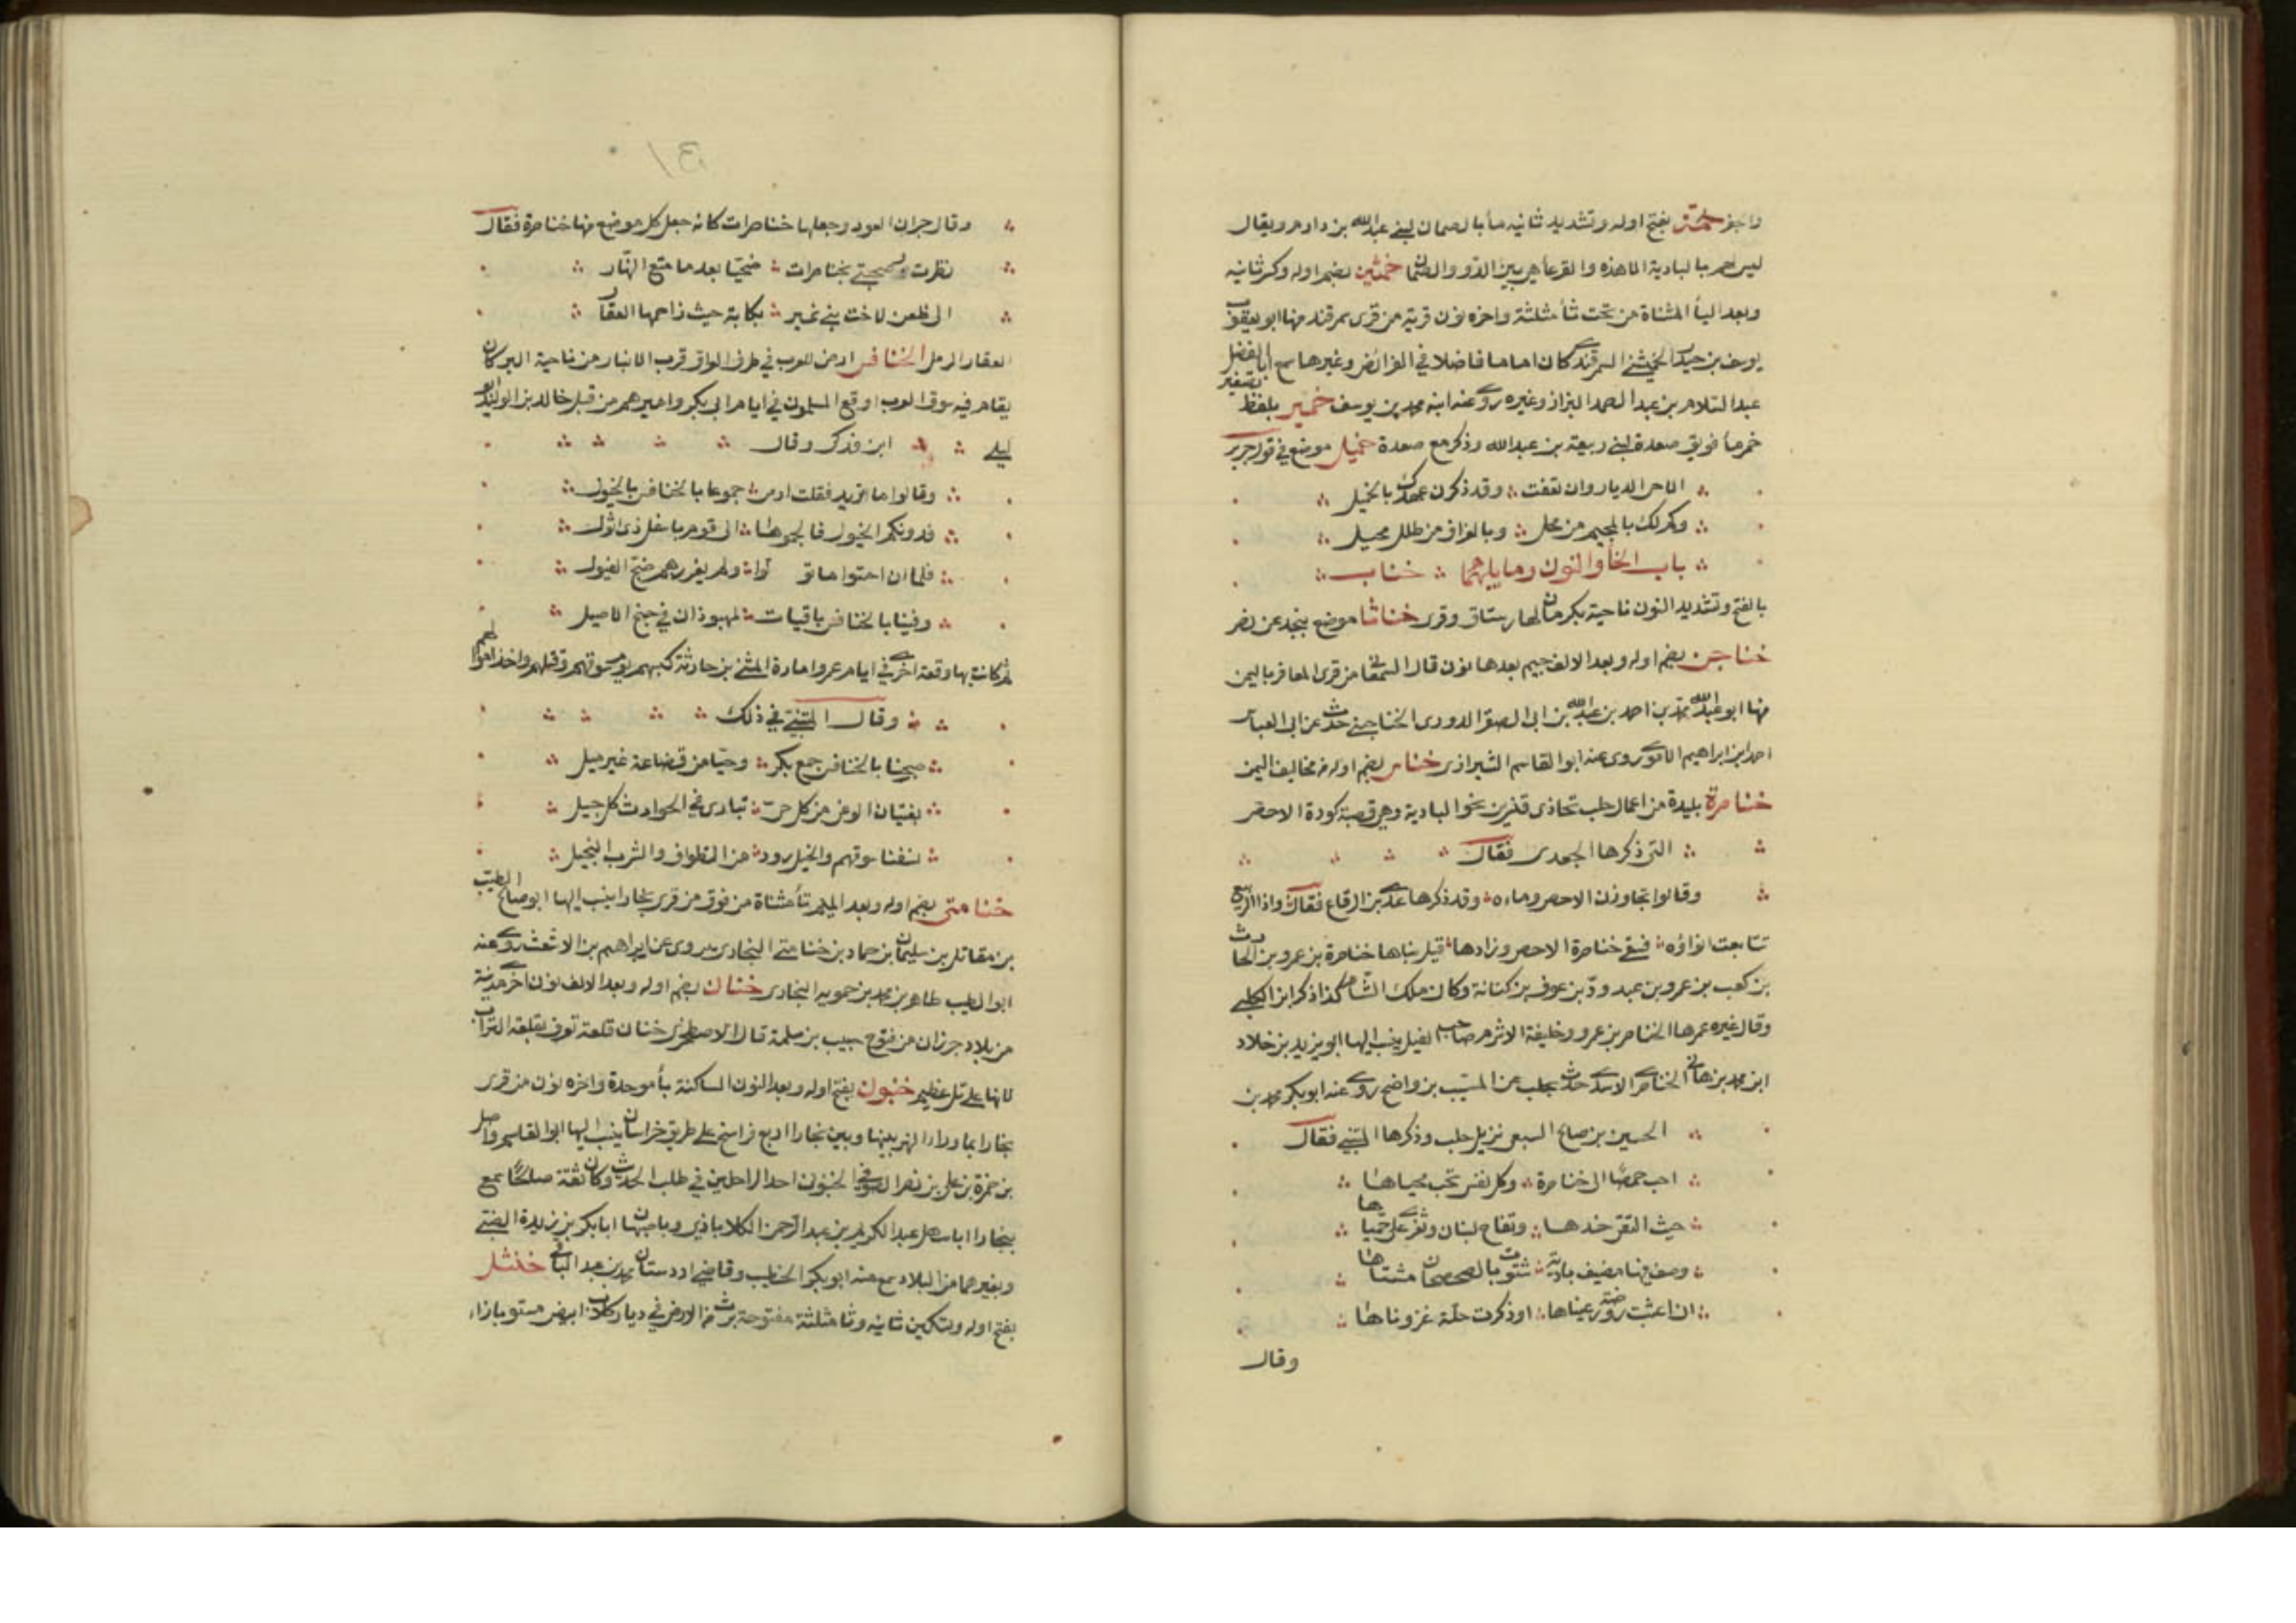 واجو خمّة بفتح اوله وتشديد ثانيه مأ بالصمان لبني عبدالله بن دارم ويقال
ليس لهم بالبادية الا هذه والقرعأ هي بين الدو والصمان خميثن بضم اوله وكسر ثانيه
وبعد اليأ المثناة من تحت ثأ مثلثة واخره نون قرية من قرى سمرقند منها ابو يعقوب
يوسف بن حيدر الخميثني السمرقندي كان اماما فاضلا في الفرائض وغيرها سمع ابا الفضل
عبد السلام بن عبد الصمد البزاز وغيره روى عنه ابنه محمد بن يوسف خمير بلفظ تصغير
خمر مأ فويق صعدة لبني ربيعة بن عبدالله وذكر مع صعدة خميل موضع في قول جرير
الا حي الديار وان تعفت وقد ذكرن عهدك بالخميل
وكم لك بالمجيمر من محل وبالعزاف من طلل محيل
باب الخأ والنون وما يليهما خناب
بالفتح وتشديد النون ناحية بكرمان لها رستاق وقرى خناثا موضع بنجد عن نصر
خناجن بضم اوله وبعد الالف جيم بعدها نون قال السمعاني من قرى المعافر باليمن
منها ابو عبدالله محمد بن احمد بن عبدالله بن ابي الصقر الدورى الخناجني حدث عن ابي العباس
احمد ابن ابراهيم روى عنه ابو القاسم الشيرازى خناس بضم اوله من مخاليف اليمن
خناصرة بليدة من اعمال حلب تحاذى قنسرين نحو البادية وهي قصبة كورة الاحص
التي ذكرها الجعدى فقال
وقالوا تجاوزن الاحص وماءه وقد ذكرها عدي بن الرقاع فقال واذا الربيع
تتابعت انواؤه فسقى خناصرة الاحص وزادها قيل بناها خناصرة بن عمرو بن الحارث
بن كعب بن عمرو بن عبد ودّ بن عوف بن كنانة وكان ملك الشام كذا ذكر ابن الكلبي
وقال غيره عمرها الخناصر بن عمرو وخليفة الاشرم صاحب الفيل ينسب اليها ابو يزيد بن خلاد
ابن محمد بن هاني الخناصري الاسدي حدث بحلب عن المسيب بن واضح روى عنه ابو بكر محمد بن
الحسين بن صالح السبيعي نزيل حلب وذكرها المتنبي فقال
احب حمصًا الى خناصرة وكل نفس تحب محياها
حيث التقى خدها وتفاح لبنان وثغري على حميّاها
وصفت فيها مصيف بادية شتوت بالصحصحان مشتاها
ان اعشبت روضة رعيناها او ذكرت حلّة غزوناها
وقال
وقال جران العود وجعلها خناصرات كانه جعل كل موضع منها خناصرة فقال
نظرت وصحبتي بخناصرات ضحيّا بعد ما متع النهار
الى ظعن لاخت بني نمير بكابة حيث زاحمها العقار
العقار الرمل الخنافس ارض للعرب في طرف العراق قرب الانبار من ناحية البردان
يقام فيه سوق العرب اوقع المسلمون في ايام ابي بكر واميرهم من قبل خالد بن الوليد ابو
ليلى ابن فدكى وقال
وقالوا ما تريد فقلت ارمى جموعا بالخنافس بالخيول
فدونكم الخيول فالجموها الى قوم باسفل ذى اثول
فلما ان احتوا ما تو لوا ولم يغررهم ضبح الفيول
وفينا بالخنافس باقيات لمهبوذان في جنح الاصيل
ثم كانت بها وقعة اخرى في ايام عمر وامارة المثنى بن حارثة كبسهم يوم سوقهم وقتلهم واخذ اموالهم
وقال المثنى في ذلك
صبحنا بالخنافس جمع بكر وحيّا من قضاعة غير ميل
بفتيان الوغى من كل حيّ تبارى في الحوادث كل جيل
نسفنا سوقهم والخيل رود من التطواف والشرب البخيل
خنامتى بضم اوله وبعد الميم تأ مثناة من فوق من قرى بخارا ينسب اليها ابو صالح الطيب
بن مقاتل بن سليمان بن حماد بن خنامتي البخارى يروى عن ابراهيم بن الاشعث روى عنه
ابو الطيب طاهر بن محمد بن حمويه البخارى خنان بضم اوله وبعد الالف نون اخرى مدينة
من بلاد جرزان من فتوح حبيب بن مسلمة قال الاصطخرى خنان قلعة تعرف بقلعة التراب
لانها على تل عظيم خنبون بفتح اوله وبعد النون الساكنة بأ موحدة واخره نون من قرى
بخارا بما ورا النهر بينها وبين بخارا اربع فراسخ على طريق خراسان ينسب اليها ابو القاسم واصل
بن حمزة بن على بن نصر الصوفي الخنبوني احد الراحلين في طلب الحديث وكان ثقة صالحًا سمع
ببخارا ابا سهل عبد الكريم بن عبد الرحمن الكلاباذى وباصبهان ابا بكر بن ريذة الضبي
وبغيرهما من البلاد سمع منه ابو بكر الخطيب وقاضي ارستان محمد بن عبد الباقي خنثل
بفتح اوله وتسكين ثانيه وثا مثلثة مفتوحة برث من الارض في ديار كلاب ابيض مستو بازاء